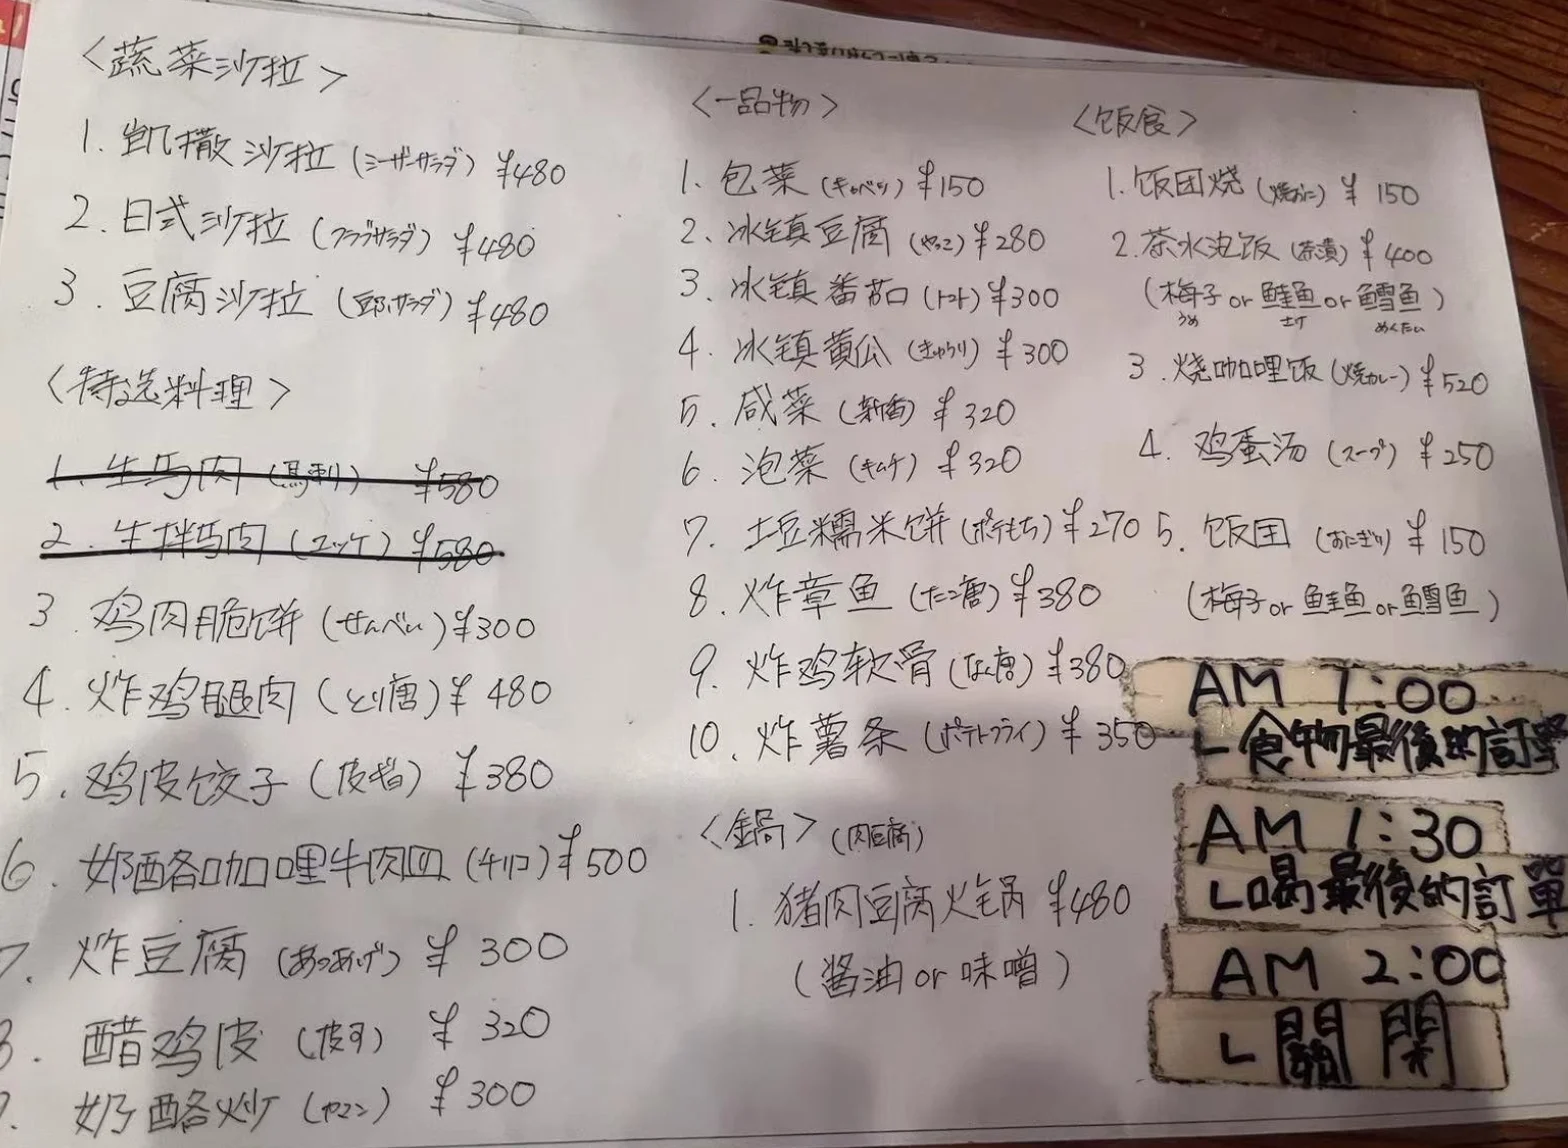 <蔬菜沙拉>
1. 凯撒沙拉 (シーザーサラダ) ¥480
2. 日式沙拉 (フラブサラダ) ¥480
3. 豆腐沙拉 (豆腐サラダ) ¥480
<特选料理>
1. 生马肉 (馬刺) ¥580
2. 生拌马肉 (ユッケ) ¥580
3. 鸡肉脆饼 (せんべい) ¥300
4. 炸鸡腿肉 (とり唐) ¥480
5. 鸡皮饺子 (皮ギョ) ¥380
6. 奶酪咖哩牛肉皿 ¥500
7. 炸豆腐 (あつあげ) ¥300
8. 醋鸡皮 ¥320
奶酪炒 ¥300
<一品物>
1. 包菜 (キャベツ) ¥150
2. 冰镇豆腐 (やっこ) ¥280
3. 冰镇番茄 (トマト) ¥300
4. 冰镇黄公 (きゅうり) ¥300
5. 咸菜 (新香) ¥320
6. 泡菜 (キムチ) ¥320
7. 土豆糯米饼 (ポテもち) ¥270
8. 炸章鱼 (たこ唐) ¥380
9. 炸鸡软骨 (なん唐) ¥380
10. 炸薯条 (ポテトフライ) ¥350
<鍋> (肉豆腐)
1. 猪肉豆腐火锅 ¥480
(醤油 or 味噌)
<饭食>
1. 饭团烧 (焼おに) ¥150
2. 茶水泡饭 (茶漬) ¥400
(梅子 or 鲑鱼 or 鳕鱼)
うめ
3. 烧咖哩饭 (焼カレー) ¥520
4. 鸡蛋汤 (スープ) ¥250
5. 饭团 (おにぎり) ¥150
(梅子 or 鲑鱼 or 鳕鱼)
AM 1:00
ー食物最後的訂單
AM 1:30
L喝最後的訂單
AM 2:00
L 關 閉